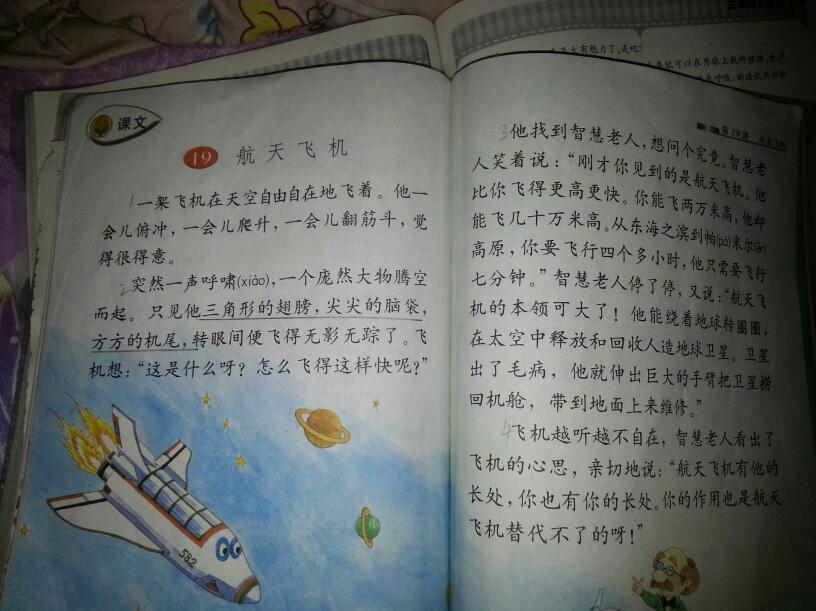 课文
19 航天飞机
1一架飞机在天空自由自在地飞着。他一
会儿俯冲，一会儿爬升，一会儿翻筋斗，觉
得很得意。
2突然一声呼啸(xiào)，一个庞然大物腾空
而起。只见他三角形的翅膀，尖尖的脑袋，
方方的机尾，转眼间便飞得无影无踪了。飞
机想：“这是什么呀？怎么飞得这样快呢？”
582
大有魅力了，是吧？
就可以在月球上栽种植物，生产
第19课
3他找到智慧老人，想问个究竟。智慧老
人笑着说：“刚才你见到的是航天飞机。他
比你飞得更高更快。你能飞两万米高，他却
能飞几十万米高。从东海之滨到帕(pà)米尔(ěr)
高原，你要飞行四个多小时，他只需要飞行
七分钟。”智慧老人停了停，又说：“航天飞
机的本领可大了！他能绕着地球转圈圈，
在太空中释放和回收人造地球卫星。卫星
出了毛病，他就伸出巨大的手臂把卫星捞
回机舱，带到地面上来维修。”
4飞机越听越不自在，智慧老人看出了
飞机的心思，亲切地说：“航天飞机有他的
长处，你也有你的长处。你的作用也是航天
飞机替代不了的呀！”